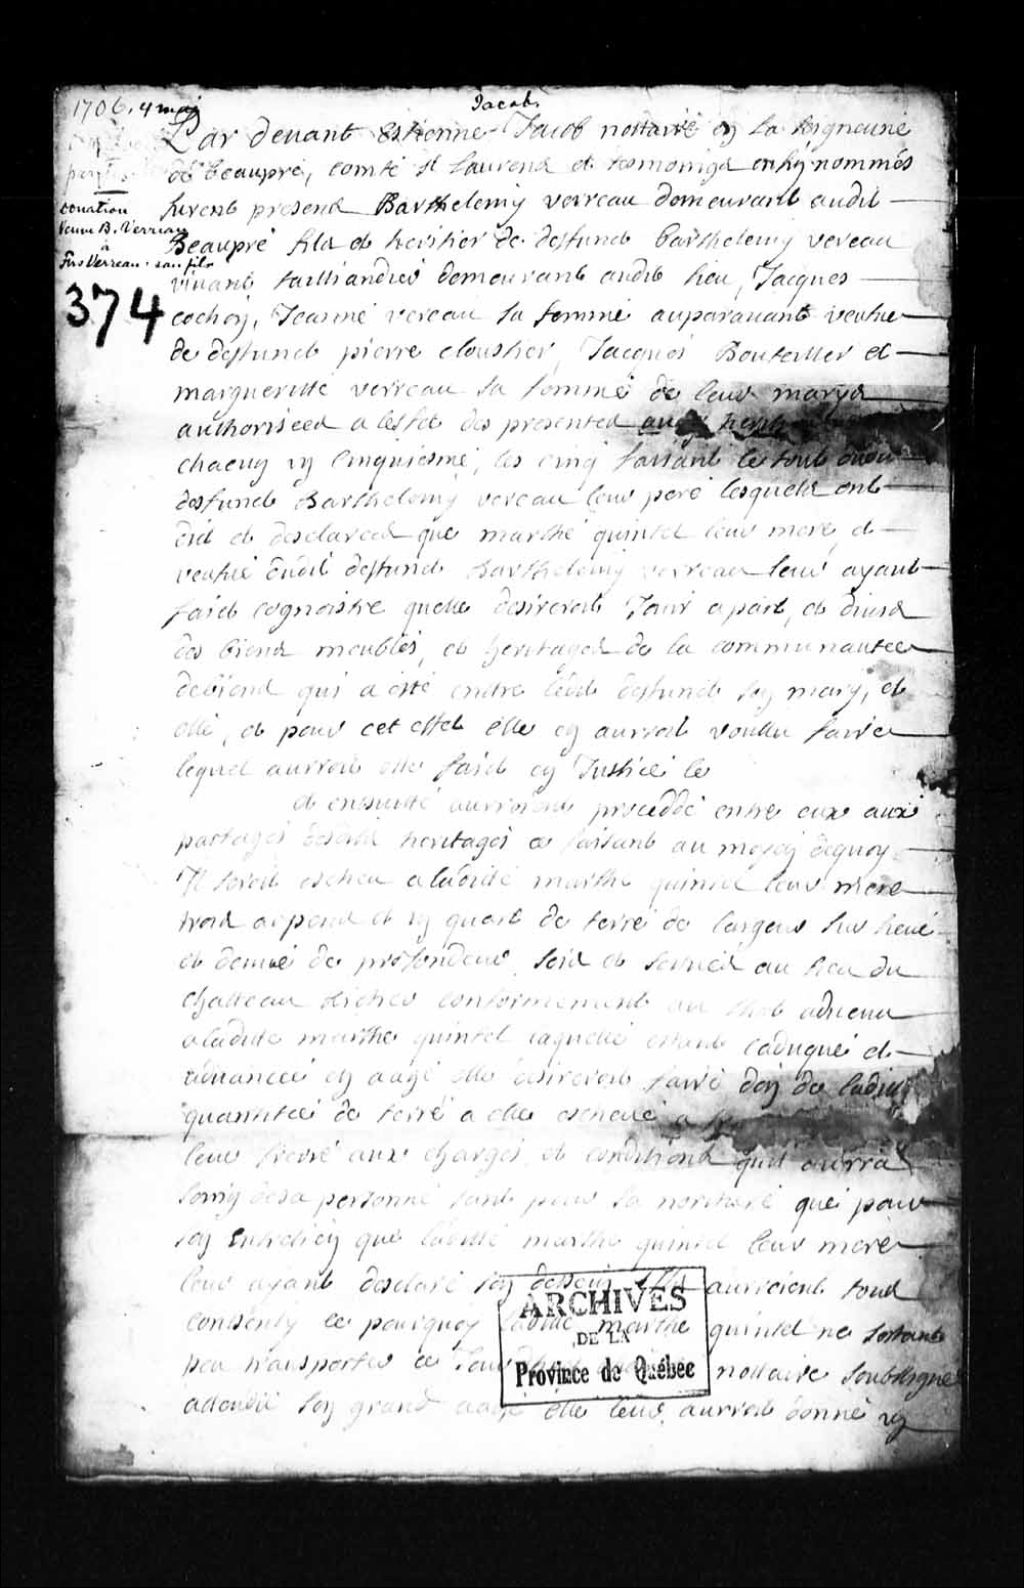 1706. 4 mai
Jacob.
Par devant Estienne Jacob nottaire en la seigneurie
de beaupré, comté st laurens et tesmoings enfin nommés
furent presens Barthelemy verreau demeurant audit
donation
Veuve B. Verreau
à
Frs Verreau son fils
374
Beaupré fils et heritier de deffunct barthelemy vereau
vivant taillandier demeurant audit lieu, Jacques
cochon, Jeanne vereau sa femme auparavant veufve
de deffunct pierre cloustier, Jacques Bouteiller et
margueritte verreau sa femme de leurs marys
authorisées a leffet des presentes
chacun un cinquiesme, les cinq faisant le tout dudit
deffunct Barthelemy vereau leur pere lesquels ont
dit et desclarés que marthe quintel leur mere, et
veufve dudit deffunct Barthelemy verreau leur ayant
faict cognoistre quelle desireroit Jouir apart, et divis
des biens meubles, et heritages de la communautee
de biens qui a esté entre ledit deffunct son mary, et
elle, et pour cet effet elle en auroit voullu faire
lequel auroit esté faict en Justice le
et ensuitte auroient proceddé entre eux aux
partages desdits heritages ce faisant au moyen dequoy
Il seroit escheu a ladite marthe quintel leur mere
trois arpens et un quart de terre de largeur sur lieue
et demie de profondeur, scis et scitués au lieu du
chatteau Richer conformement au advenu
a ladite marthe quintel laquelle estant caduque et
advancée en aage elle desireroit faire don de ladite
quantitée de terre a elle escheue a
leur frere aux charges, et conditions quil auira
soing de sa personne tant pour sa norriture que pour
son Entretien que ladite marthe quintel leur mere
leur ayant desclaré son dessein Ils auroient tous
consenty ce pourquoy ladite marthe quintel ne sestant
peu transporter ce nottaire soubsigné
attendu son grand aage elle leur auroit donné un
ARCHIVES
DE LA
Province de Québec